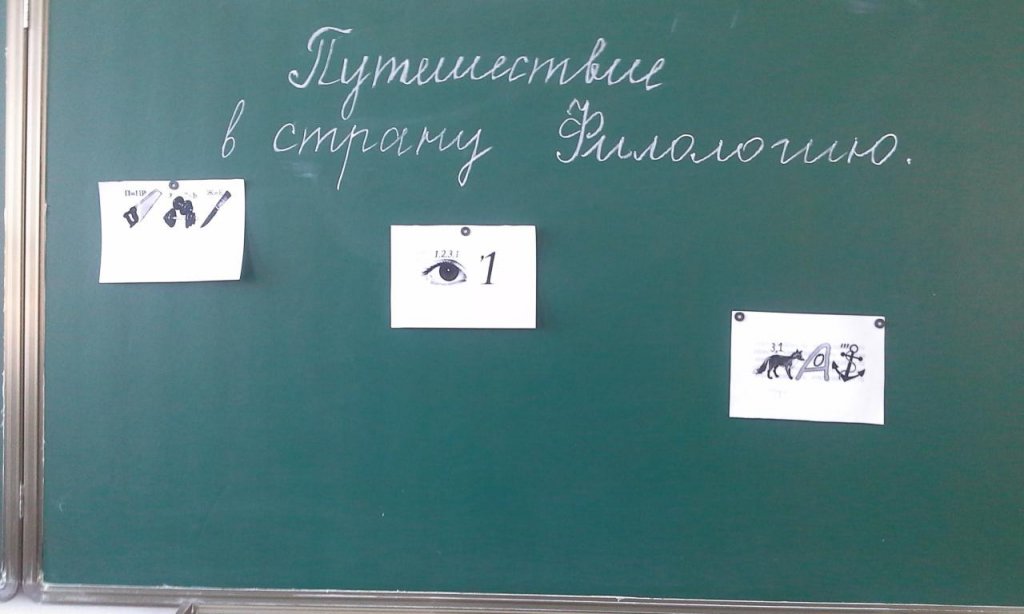 Путешествие
в страну Филологию.
1.2.3.1
'1
3,1
А
О